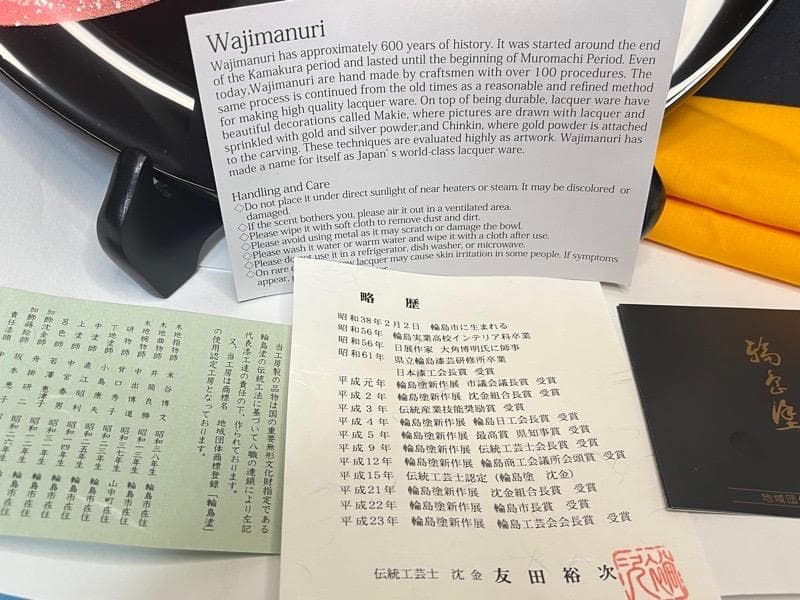 Wajimanuri
Wajimanuri has approximately 600 years of history. It was started around the end
of the Kamakura period and lasted until the beginning of Muromachi Period. Even
today,Wajimanuri are hand made by craftsmen with over 100 procedures. The
same process is continued from the old times as a reasonable and refined method
for making high quality lacquer ware. On top of being durable, lacquer ware have
beautiful decorations called Makie, where pictures are drawn with lacquer and
sprinkled with gold and silver powder,and Chinkin, where gold powder is attached
to the carving. These techniques are evaluated highly as artwork. Wajimanuri has
made a name for itself as Japan's world-class lacquer ware.
Handling and Care
◇Do not place it under direct sunlight of near heaters or steam. It may be discolored or
damaged.
◇If the scent bothers you, please air it out in a ventilated area.
◇Please wipe it with soft cloth to remove dust and dirt.
◇Please avoid using metal as it may scratch or damage the bowl.
◇Please wash it water or warm water and wipe it with a cloth after use.
◇Please do not use it in a refrigerator, dish washer, or microwave.
◇On rare lacquer may cause skin irritation in some people. If symptoms
appear,
当工房製の品物は国の重要無形文化財指定である
輪島塗の伝統工法に基づいて八職の連鎖により左記
代表漆工達の責任の下、作られております。
又、当工房は商標名 地域団体商標登録「輪島塗」
の使用認定工房となっております。
木地指物師 米谷博文 輪島市在住
木地曲物師 井筒良勝 輪島市在住
木地椀物師 中出博道
研物師
下地塗師
中塗師
上塗師
呂色師
加飾沈金師
加飾蒔絵師
略歴
昭和38年2月2日 輪島市に生まれる
昭和56年 輪島実業高校インテリア科卒業
昭和56年 日展作家 大角博明氏に師事
昭和61年 県立輪島漆芸研修所卒業
日本漆工会長賞 受賞
平成元年 輪島塗新作展 市議会議長賞 受賞
平成2年 輪島塗新作展 沈金組合長賞 受賞
平成3年 伝統産業技能奨励賞 受賞
平成4年 輪島塗新作展 輪島日工会長賞 受賞
平成5年 輪島塗新作展 最高賞 県知事賞 受賞
平成9年 輪島塗新作展 伝統工芸士会長賞 受賞
平成12年 輪島塗新作展 輪島商工会議所会頭賞 受賞
平成15年 伝統工芸士認定(輪島塗 沈金)
平成21年 輪島塗新作展 沈金組合長賞 受賞
平成22年 輪島塗新作展 輪島市長賞 受賞
平成23年 輪島塗新作展 輪島工芸会会長賞 受賞
伝統工芸士 沈金 友田裕次
輪島塗
地域団